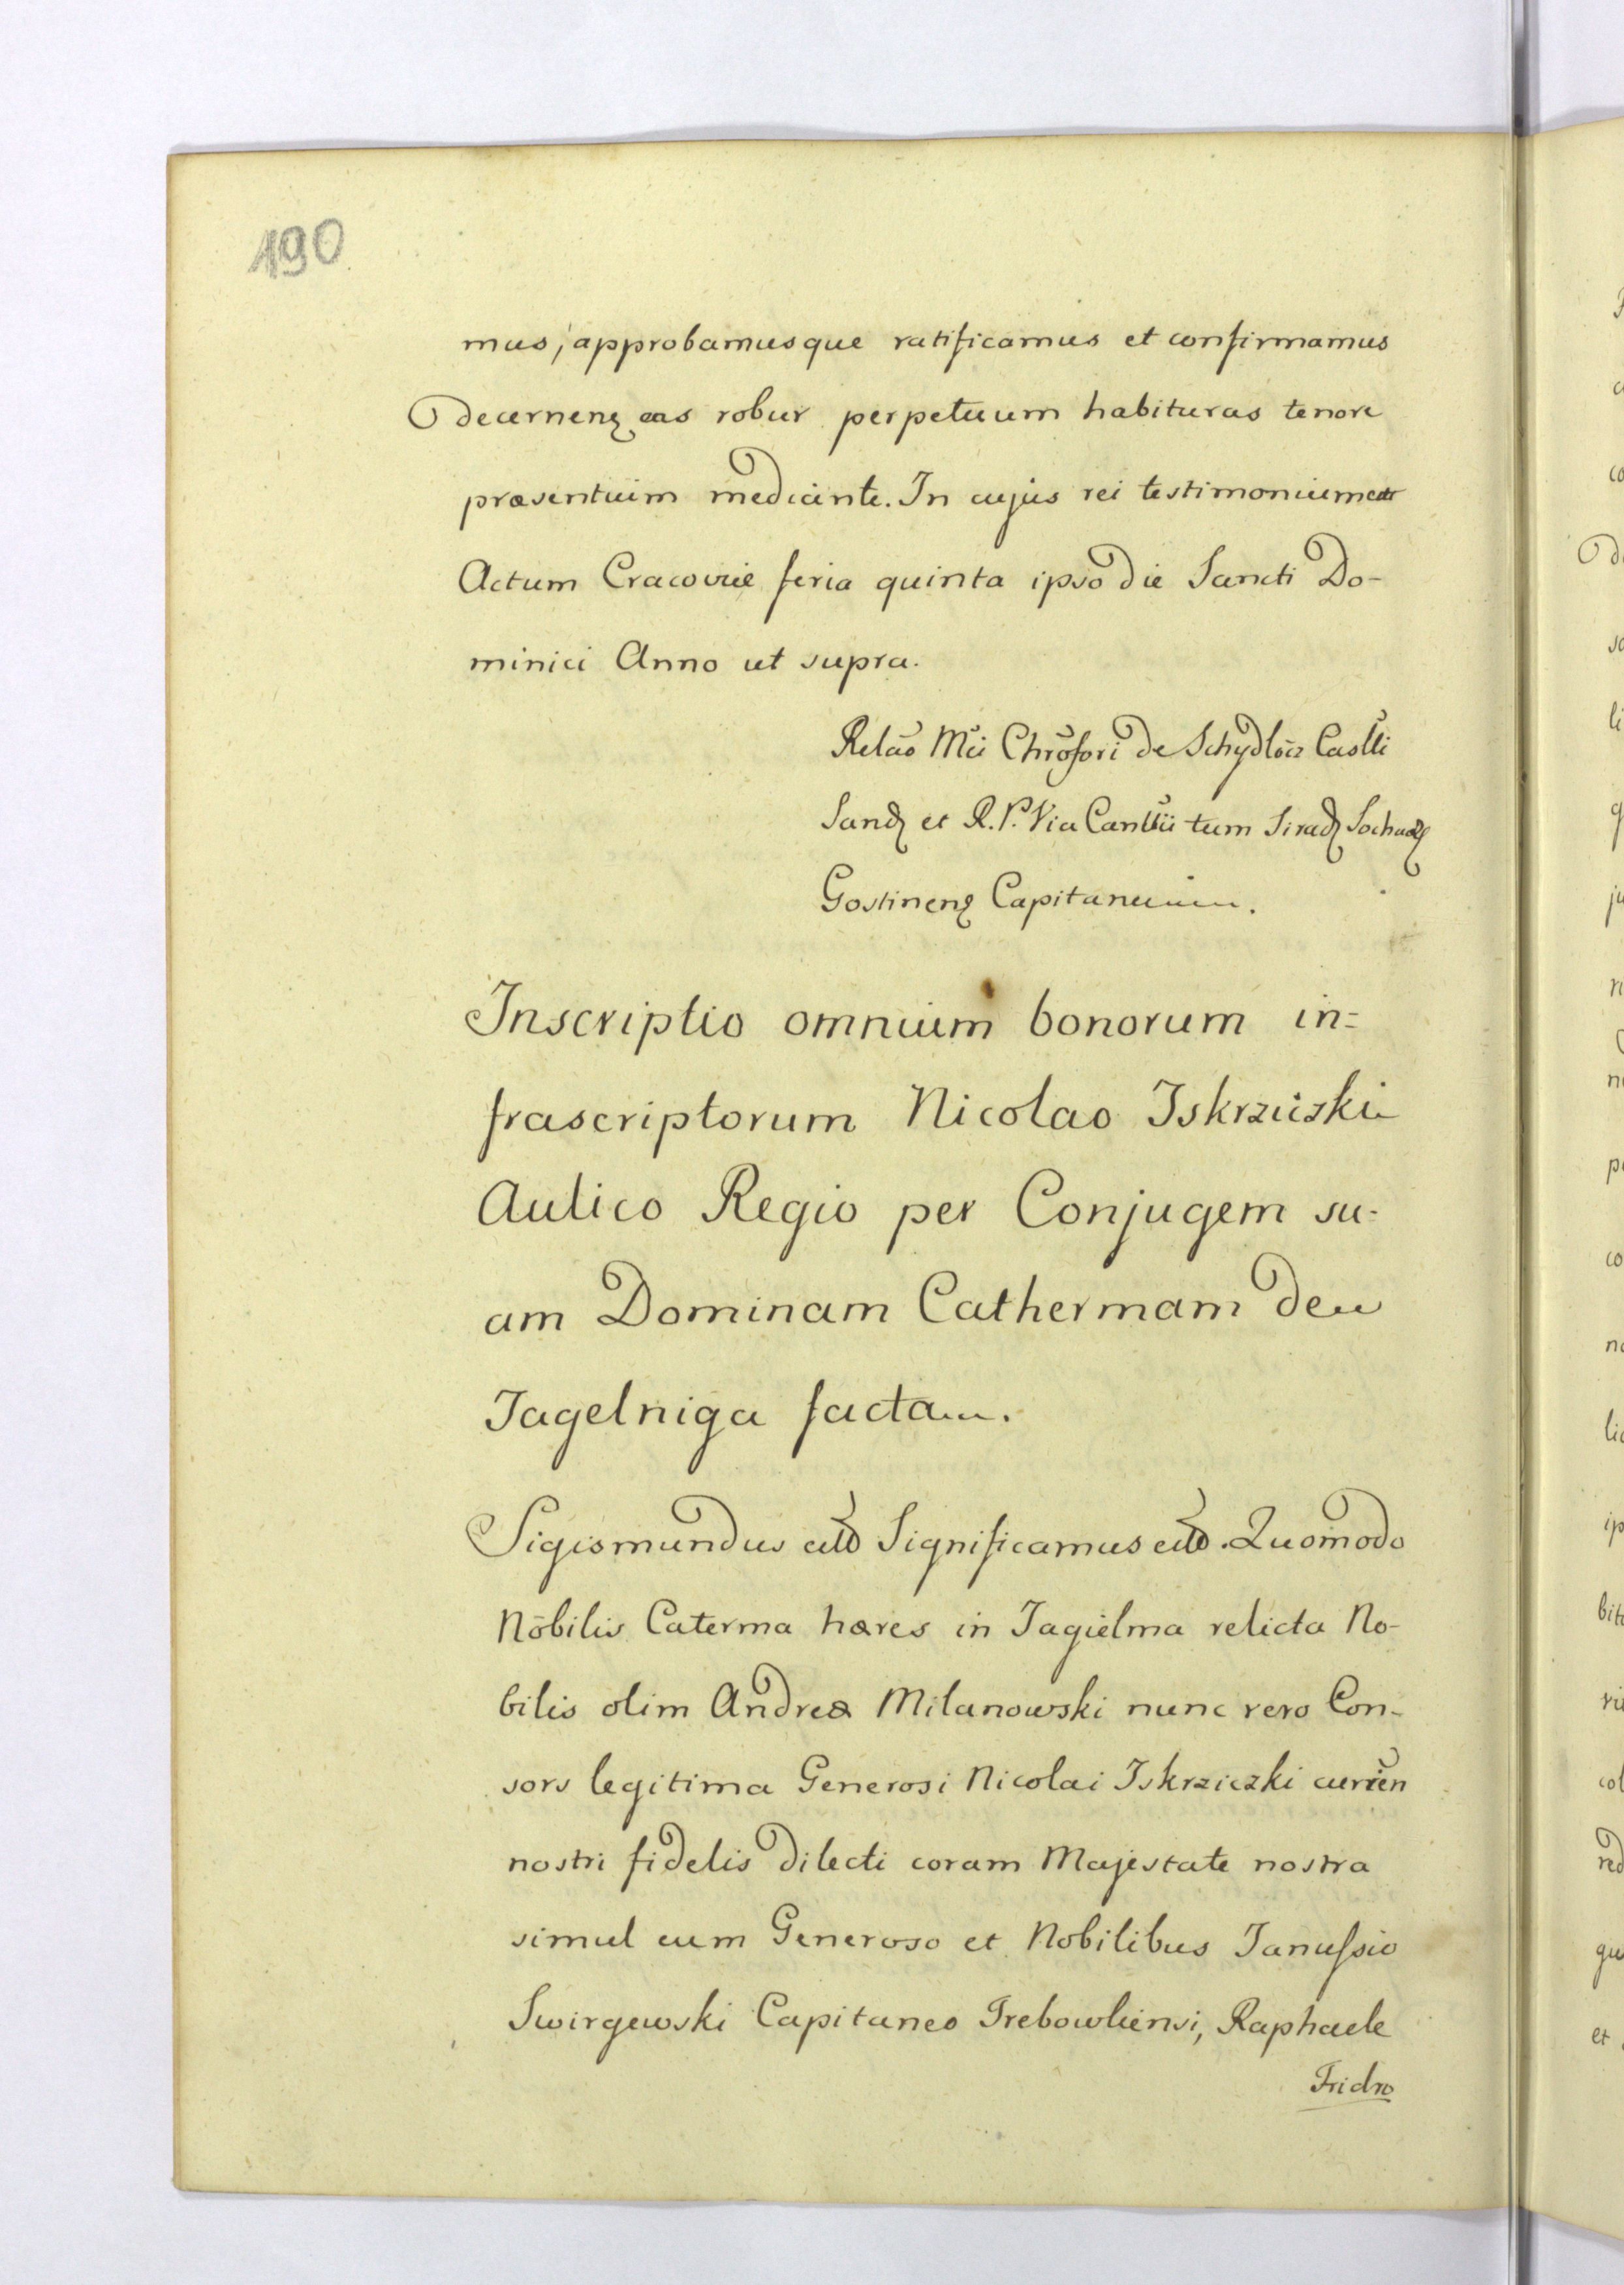 190
mus, approbamusque ratificamus et confirmamus
decernenꝫ eas robur perpetuum habituras tenore
præsentium mediante. In cujus rei testimonium etc
Actum Cracoviæ feria quinta ipso die Sancti Do-
minici Anno ut supra.
Relão Mci Chrõfori de Schydlõcz Castlli
Sandꝫ et R. P. Vice Canllii tum Siradꝫ Sochacꝫ
Gostinenꝫ Capitaneum.
Inscriptio omnium bonorum in=
frascriptorum Nicolao Iskrziczki
Aulico Regio per Conjugem su=
am Dominam Cathermam de
Jagelniga factam.
Sigismundus etc Significamus etc. Quomodo
Nobilis Caterma hæres in Jagielma relicta No-
bilis olim Andreæ Milanowski nunc vero Con-
sors legitima Generosi Nicolai Iskrziczki curien
nostri fidelis dilecti coram Majestate nostra
simul cum Generoso et Nobilibus Janussio
Swirgewski Capitaneo Trebowliensi, Raphaele
Fridro